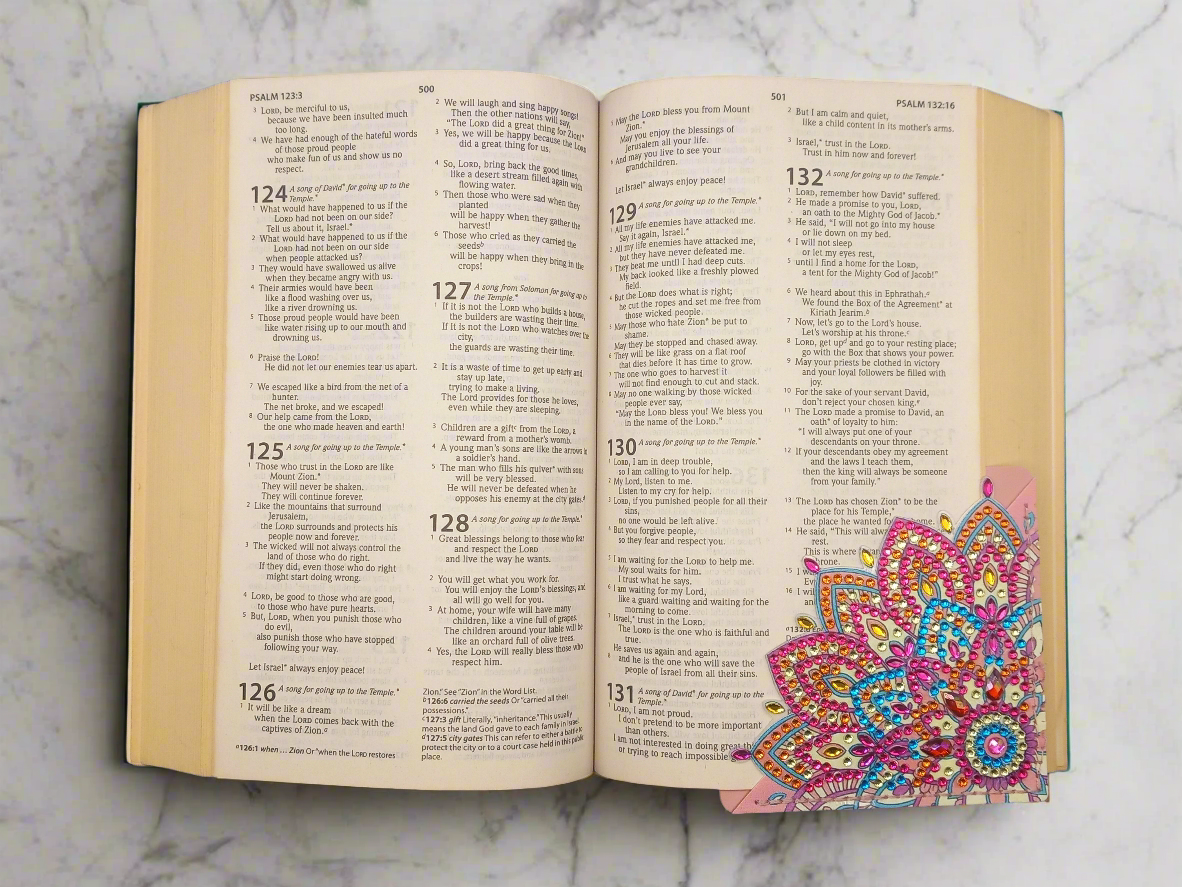 PSALM 123:3
500
3 LORD, be merciful to us,
because we have been insulted much
too long.
4 We have had enough of the hateful words
of those proud people
who make fun of us and show us no
respect.
124 A song of David* for going up to the
Temple.*
1 What would have happened to us if the
LORD had not been on our side?
Tell us about it, Israel.*
2 What would have happened to us if the
LORD had not been on our side
when people attacked us?
3 They would have swallowed us alive
when they became angry with us.
4 Their armies would have been
like a flood washing over us,
like a river drowning us.
5 Those proud people would have been
like water rising up to our mouth and
drowning us.
6 Praise the LORD!
He did not let our enemies tear us apart.
7 We escaped like a bird from the net of a
hunter.
The net broke, and we escaped!
8 Our help came from the LORD,
the one who made heaven and earth!
125 A song for going up to the Temple.*
1 Those who trust in the LORD are like
Mount Zion.*
They will never be shaken.
They will continue forever.
2 Like the mountains that surround
Jerusalem,
the LORD surrounds and protects his
people now and forever.
3 The wicked will not always control the
land of those who do right.
If they did, even those who do right
might start doing wrong.
4 LORD, be good to those who are good,
to those who have pure hearts.
5 But, LORD, when you punish those who
do evil,
also punish those who have stopped
following your way.
Let Israel* always enjoy peace!
126 A song for going up to the Temple.*
1 It will be like a dream
when the LORD comes back with the
captives of Zion.a
a126:1 when ... Zion Or "when the LORD restores
2 We will laugh and sing happy songs!
Then the other nations will say,
"The LORD did a great thing for Zion!"
3 Yes, we will be happy because the LORD
did a great thing for us.
4 So, LORD, bring back the good times,
like a desert stream filled again with
flowing water.
5 Then those who were sad when they
planted
will be happy when they gather the
harvest!
6 Those who cried as they carried the
seedsb
will be happy when they bring in the
crops!
127 A song from Solomon for going up to
the Temple.*
1 If it is not the LORD who builds a house,
the builders are wasting their time.
If it is not the LORD who watches over the
city,
the guards are wasting their time.
2 It is a waste of time to get up early and
stay up late,
trying to make a living.
The Lord provides for those he loves,
even while they are sleeping.
3 Children are a giftc from the LORD, a
reward from a mother's womb.
4 A young man's sons are like the arrows in
a soldier's hand.
5 The man who fills his quiver* with sons
will be very blessed.
He will never be defeated when he
opposes his enemy at the city gates.d
128 A song for going up to the Temple.*
1 Great blessings belong to those who fear
and respect the LORD
and live the way he wants.
2 You will get what you work for.
You will enjoy the LORD's blessings, and
all will go well for you.
3 At home, your wife will have many
children, like a vine full of grapes.
The children around your table will be
like an orchard full of olive trees.
4 Yes, the LORD will really bless those who
respect him.
Zion." See "Zion" in the Word List.
b126:6 carried the seeds Or "carried all their
possessions."
c127:3 gift Literally, "inheritance." This usually
means the land God gave to each family in Israel.
d127:5 city gates This can refer to either a battle to
protect the city or to a court case held in this public
place.
501
PSALM 132:16
5 May the LORD bless you from Mount
Zion.*
May you enjoy the blessings of
Jerusalem all your life.
6 And may you live to see your
grandchildren.
Let Israel* always enjoy peace!
129 A song for going up to the Temple.*
1 All my life enemies have attacked me.
Say it again, Israel.*
2 All my life enemies have attacked me,
but they have never defeated me.
3 They beat me until I had deep cuts.
My back looked like a freshly plowed
field.
4 But the LORD does what is right;
he cut the ropes and set me free from
those wicked people.
5 May those who hate Zion* be put to
shame.
May they be stopped and chased away.
6 They will be like grass on a flat roof
that dies before it has time to grow.
7 The one who goes to harvest it
will not find enough to cut and stack.
8 May no one walking by those wicked
people ever say,
"May the LORD bless you! We bless you
in the name of the LORD."
130 A song for going up to the Temple.*
1 LORD, I am in deep trouble,
so I am calling to you for help.
2 My Lord, listen to me.
Listen to my cry for help.
3 LORD, if you punished people for all their
sins,
no one would be left alive.
4 But you forgive people,
so they fear and respect you.
5 I am waiting for the LORD to help me.
My soul waits for him.
I trust what he says.
6 I am waiting for my Lord,
like a guard waiting and waiting for the
morning to come.
7 Israel,* trust in the LORD.
The LORD is the one who is faithful and
true.
He saves us again and again,
8 and he is the one who will save the
people of Israel from all their sins.
131 A song of David* for going up to the
Temple.*
1 LORD, I am not proud.
I don't pretend to be more important
than others.
I am not interested in doing great
or trying to reach impossible
2 But I am calm and quiet,
like a child content in its mother's arms.
3 Israel,* trust in the LORD.
Trust in him now and forever!
132 A song for going up to the Temple.*
1 LORD, remember how David* suffered.
2 He made a promise to you, LORD,
an oath to the Mighty God of Jacob.*
3 He said, "I will not go into my house
or lie down on my bed.
4 I will not sleep
or let my eyes rest,
5 until I find a home for the LORD,
a tent for the Mighty God of Jacob!"
6 We heard about this in Ephrathah.a
We found the Box of the Agreement* at
Kiriath Jearim.b
7 Now, let's go to the Lord's house.
Let's worship at his throne.c
8 LORD, get upd and go to your resting place;
go with the Box that shows your power.
9 May your priests be clothed in victory
and your loyal followers be filled with
joy.
10 For the sake of your servant David,
don't reject your chosen king.e
11 The LORD made a promise to David, an
oath* of loyalty to him:
"I will always put one of your
descendants on your throne.
12 If your descendants obey my agreement
and the laws I teach them,
then the king will always be someone
from your family."
13 The LORD has chosen Zion* to be the
place for his Temple,*
the place he wanted for home.
14 He said, "This will
rest.
This is where
throne.
15 I
16 I